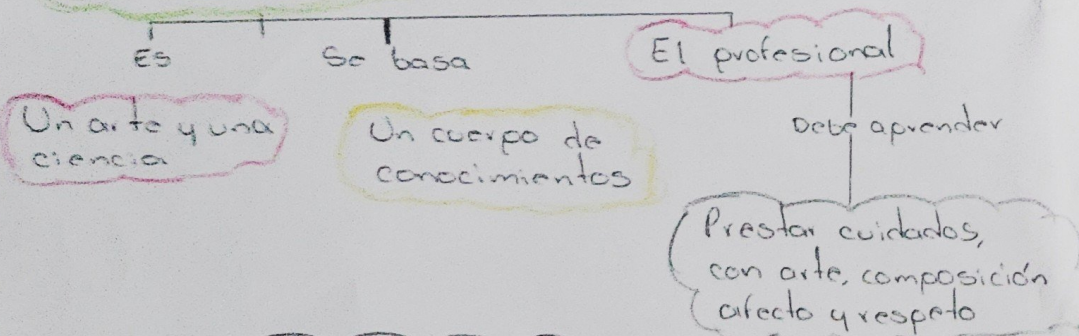 Es
Se basa
El profesional
Un arte y una
ciencia
Un cuerpo de
conocimientos
Debe aprender
Prestar cuidados,
con arte, composición
afecto y respeto